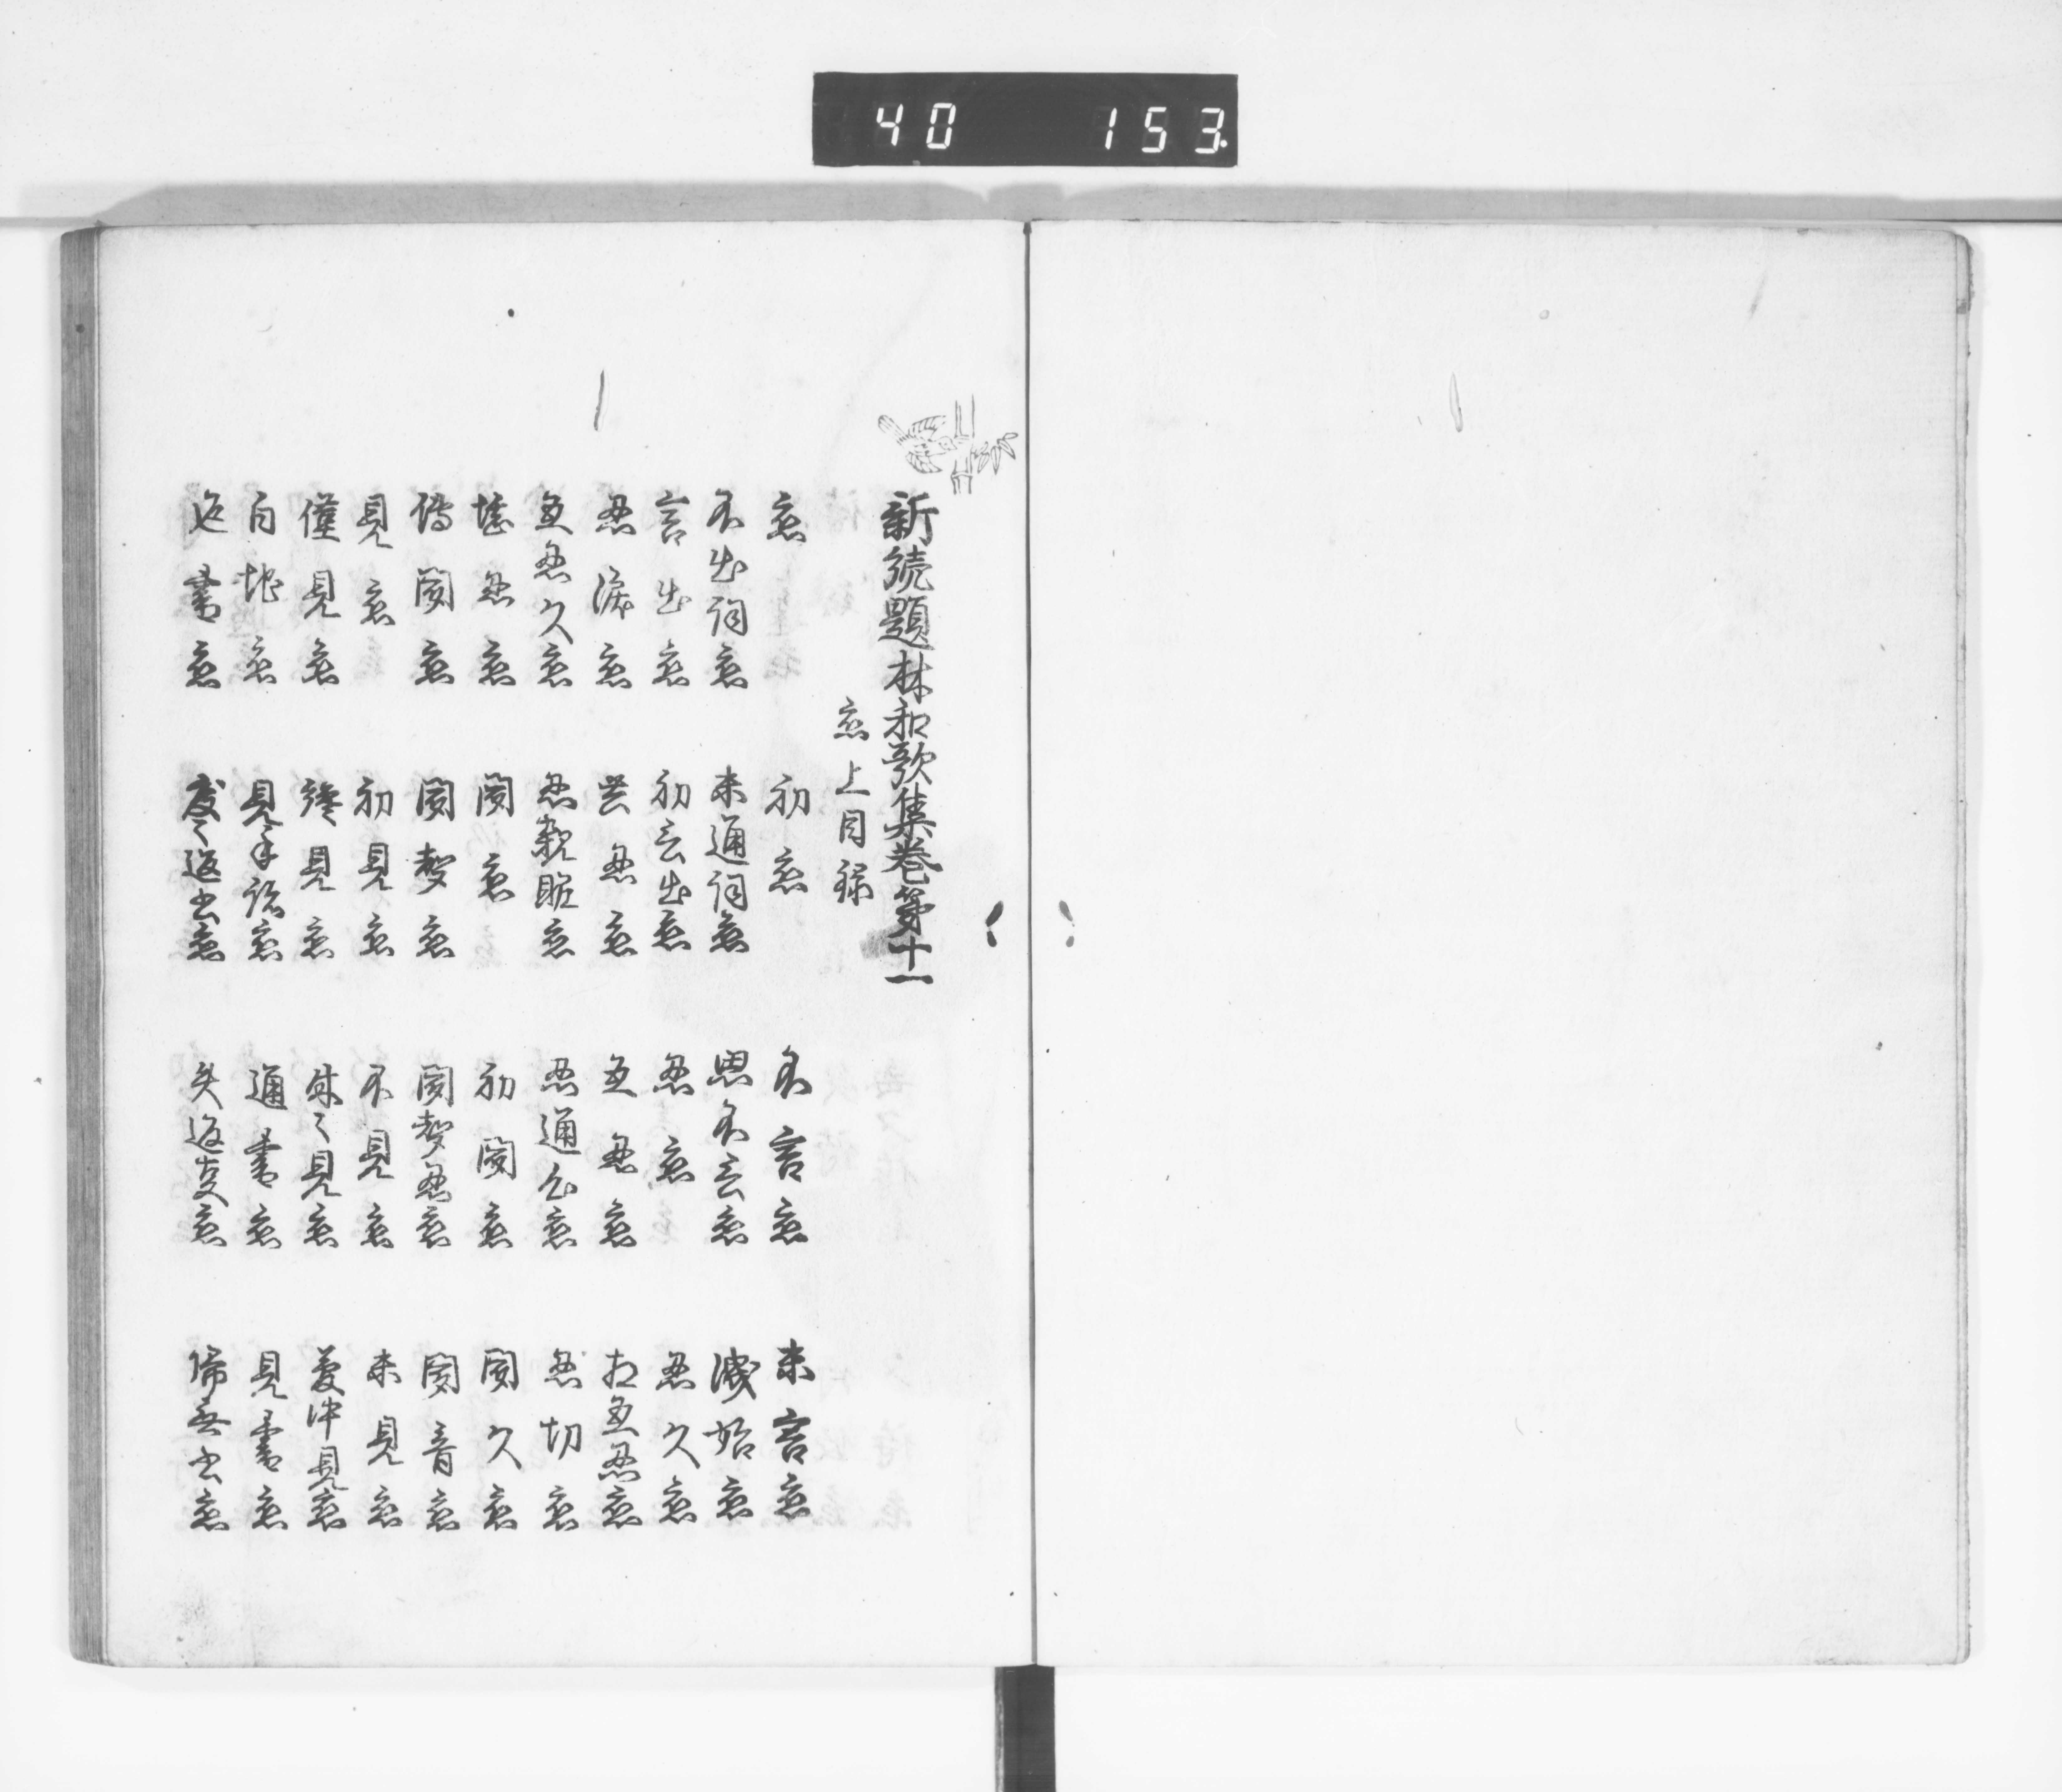 40 153
新続題林和歌集巻第十一
恋上目録
恋 初恋 不言恋 未言恋
不出詞恋 未通詞恋 思不云恋 洩始恋
言出恋 初言出恋 忍恋 忍久恋
忍涙恋 共忍恋 互忍恋 相互忍恋
互忍久恋 忍親眤恋 忍通心恋 忍切恋
忍恋 聞恋 初聞恋 聞久恋
伝聞恋 聞声恋 聞声忍恋 聞音恋
見恋 初見恋 不見恋 未見恋
僅見恋 纔見恋 時々見恋 夢中見恋
白地恋 見手跡恋 通書恋 見書恋
返書恋 度々返書恋 失返事恋 帰無書恋